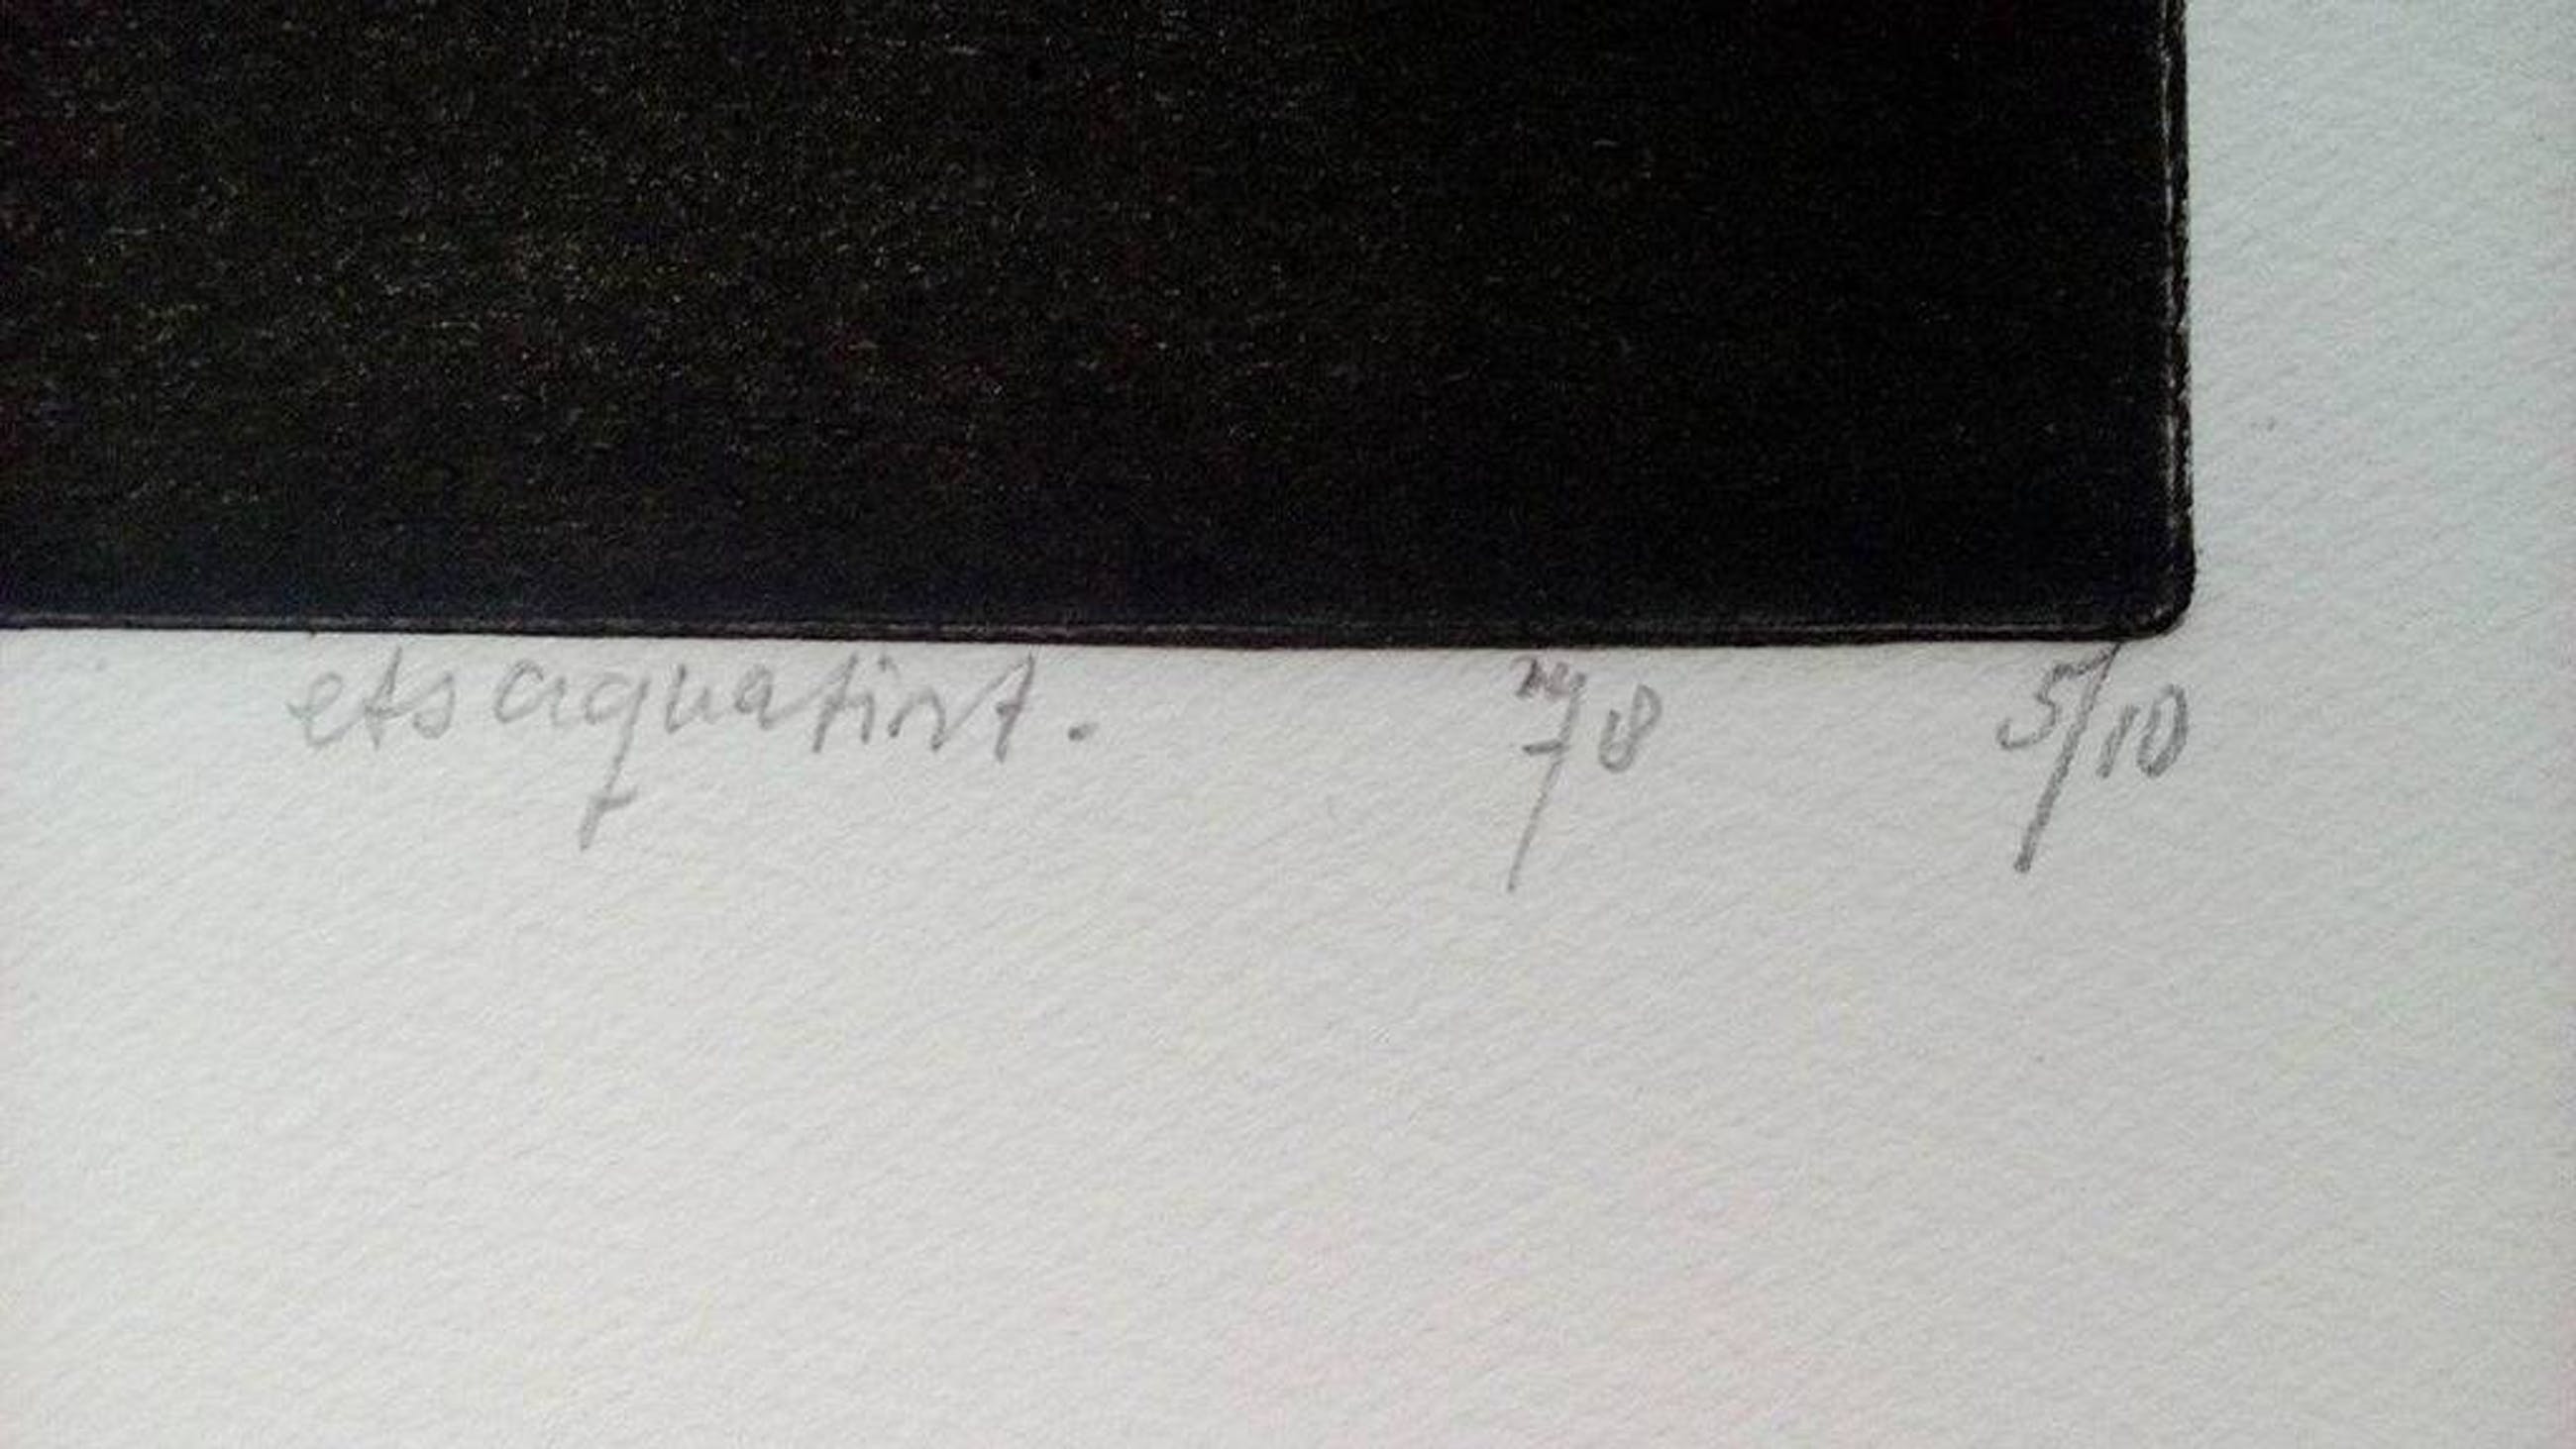 ets aquatint. 78 5/10